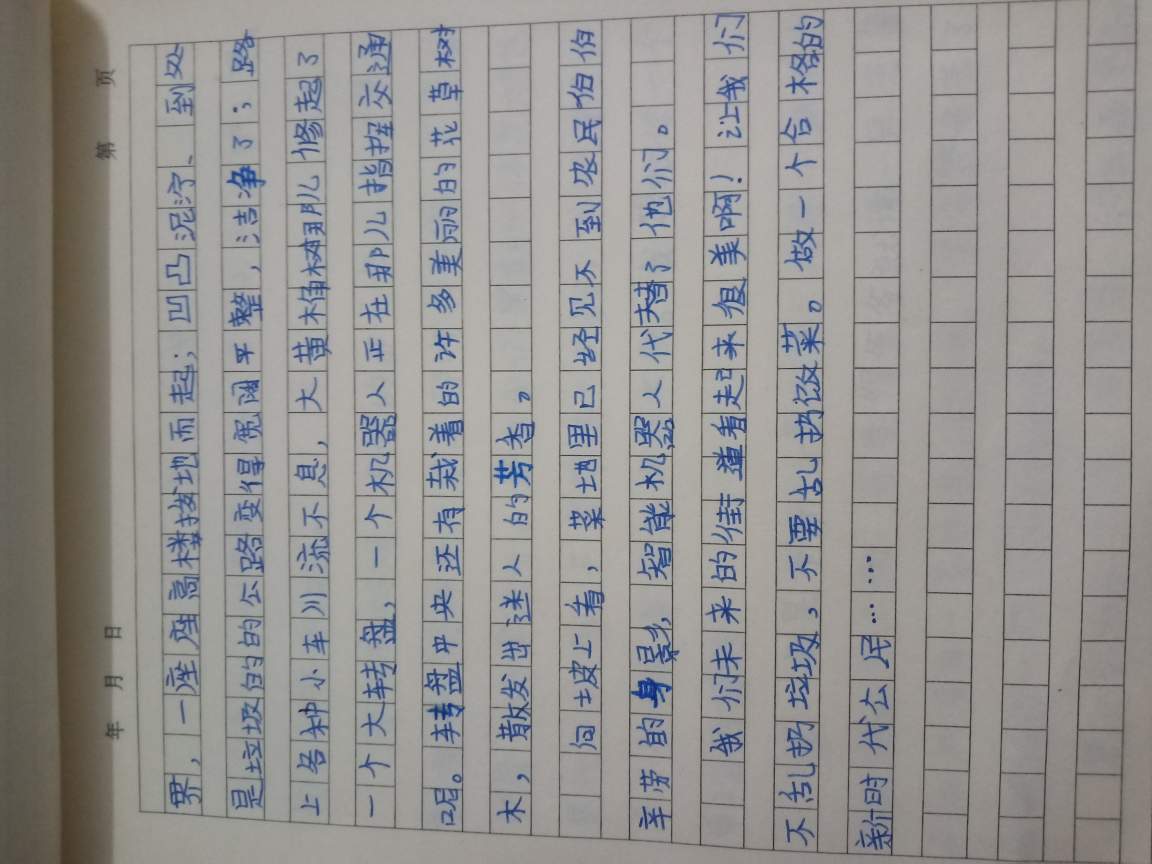 第 页
年 月 日
界，一座座高楼拔地而起；凹凸泥泞、到处
是垃圾的的公路变得宽阔平整，洁净了；路
上各种小车川流不息，大黄桷树那儿修起了
一个大转盘，一个机器人正在那儿指挥交通
呢。转盘中央还有栽着的许多美丽的花草树
木，散发出迷人的芳香。
向坡上看，菜地里已经见不到农民伯伯
辛劳的身影，智能机器人代替了他们。
我们未来的街道看起来很美啊！让我们
不乱扔垃圾，不要乱扔饭菜。做一个合格的
新时代公民……